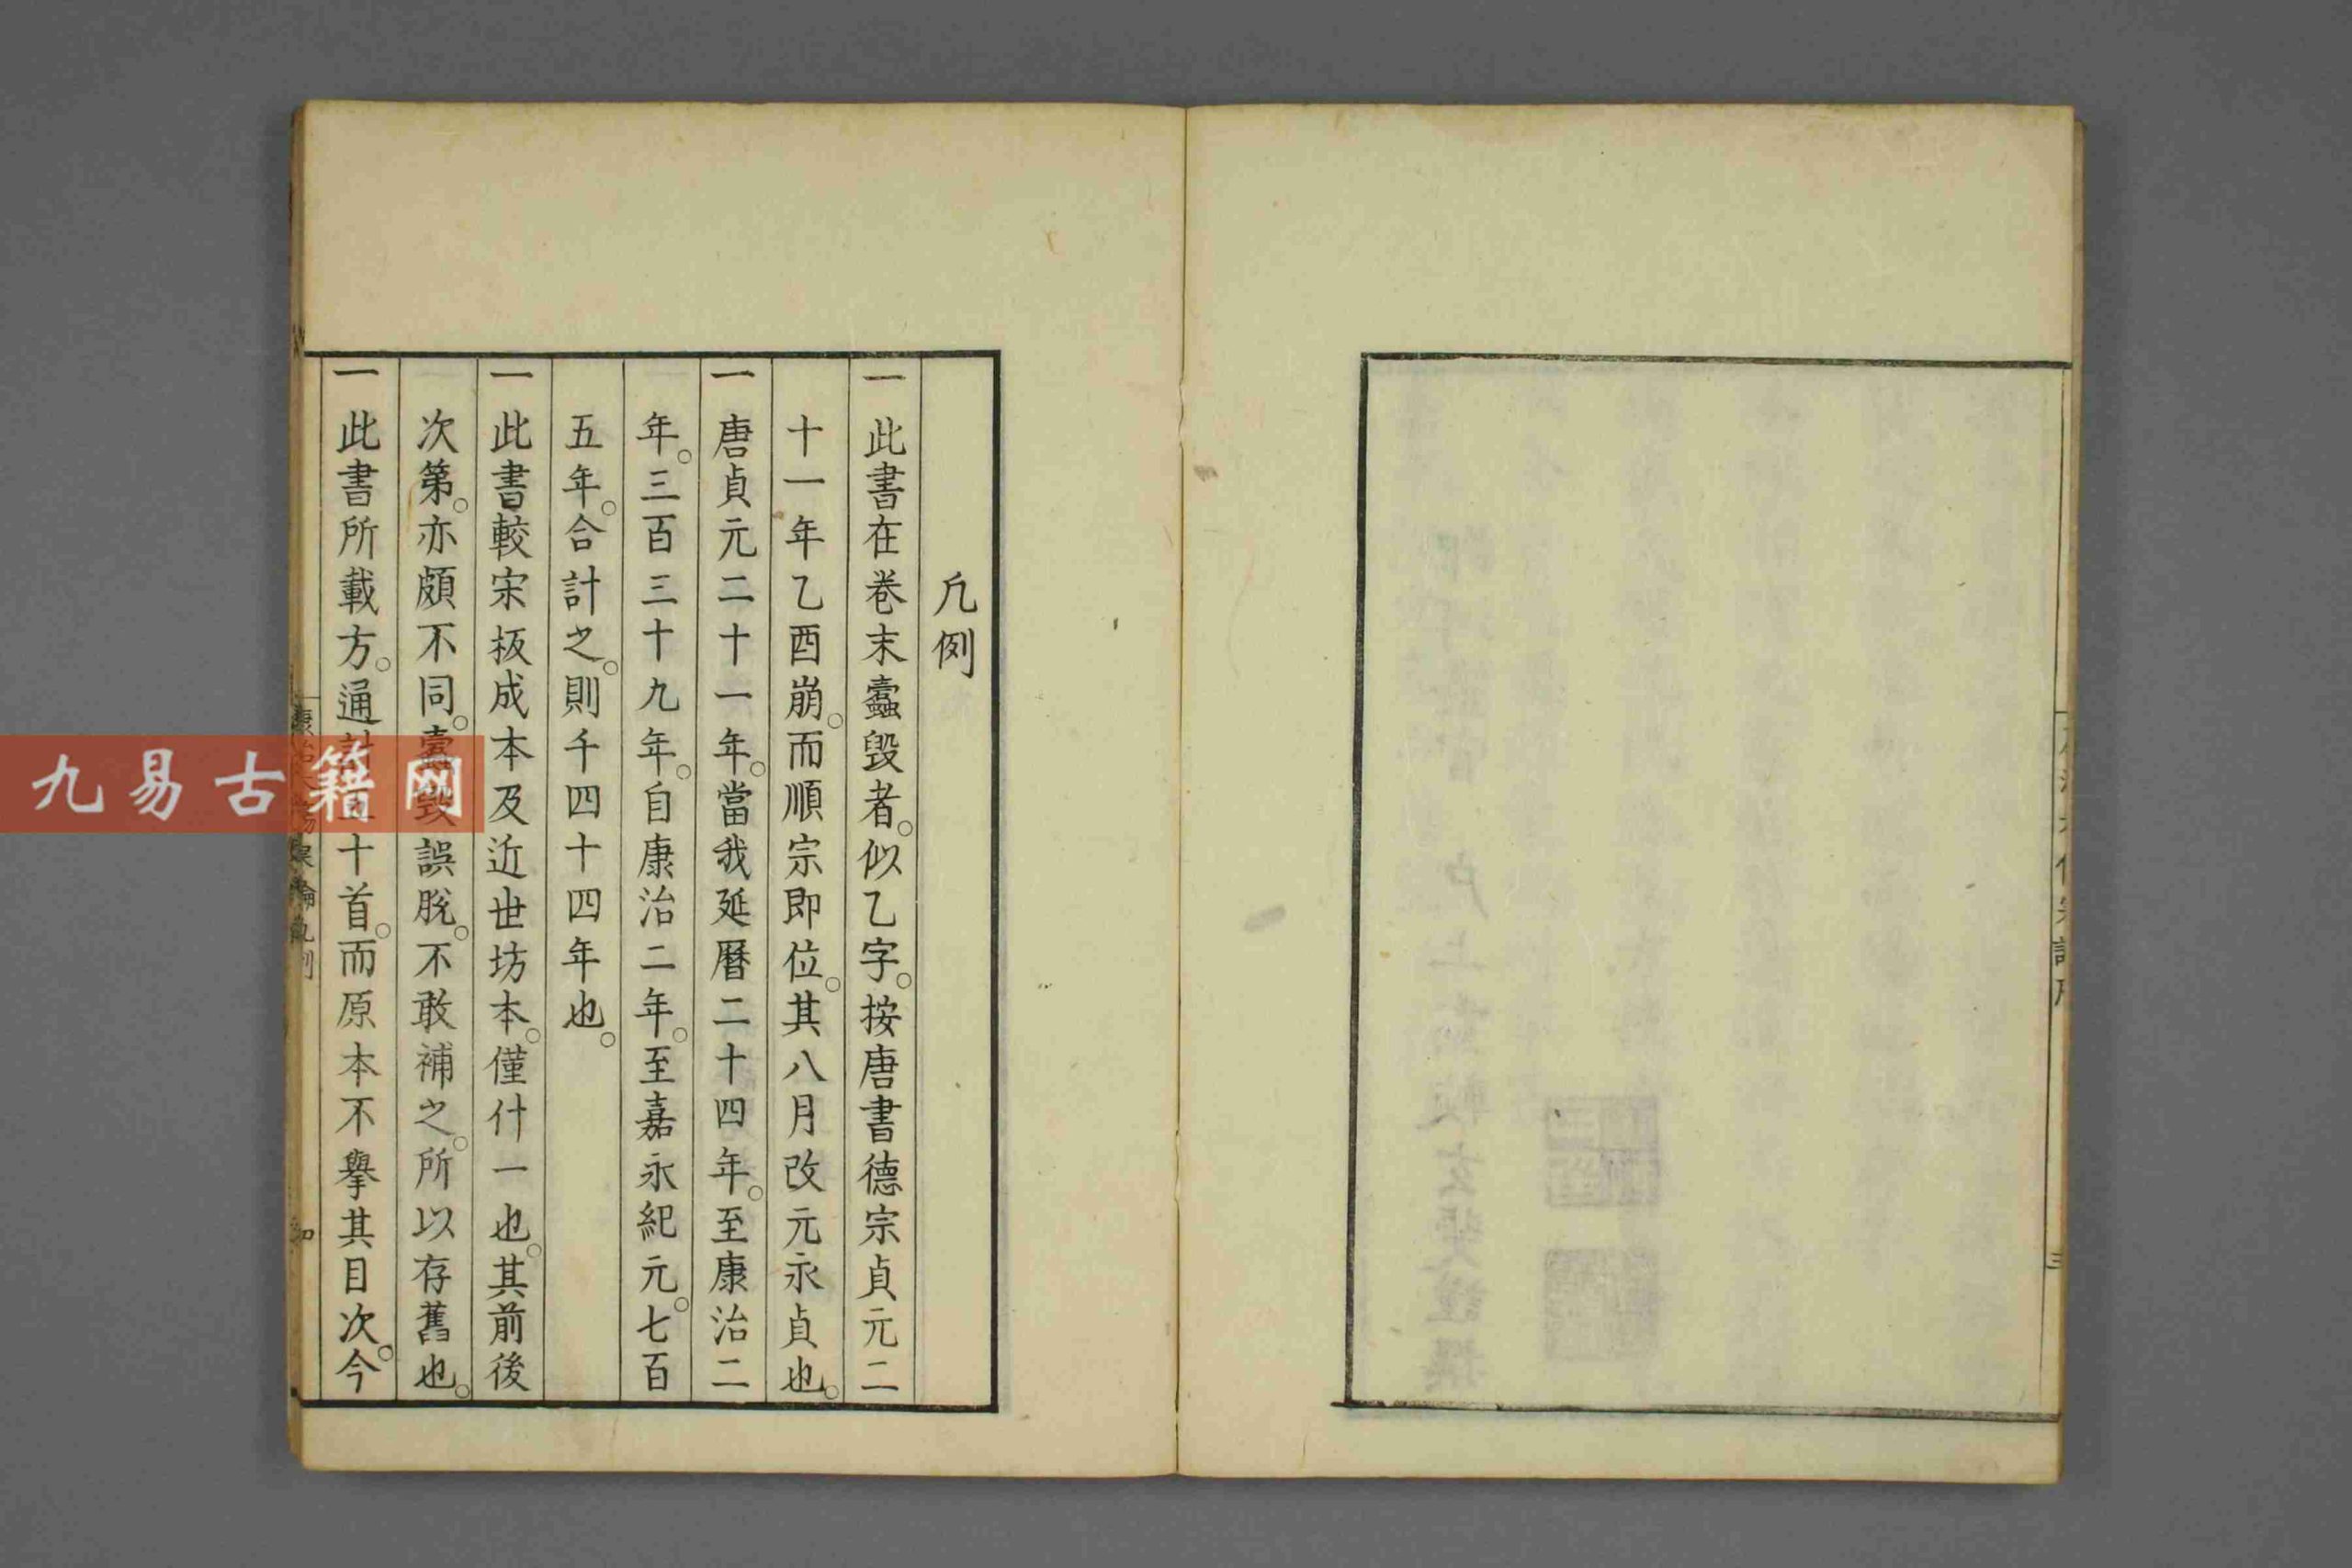 凡例
一此書在卷末蠧毀者。似乙字。按唐書德宗貞元二
十一年乙酉崩。而順宗即位。其八月改元永貞也。
一唐貞元二十一年。當我延曆二十四年。至康治二
年。三百三十九年。自康治二年。至嘉永紀元。七百
五年。合計之。則千四十四年也。
一此書較宋板成本及近世坊本。僅什一也。其前後
次第。亦頗不同。蠧毀誤脫。不敢補之。所以存舊也。
一此書所載方。通計五十首。而原本不擧其目次。今
九易古籍网